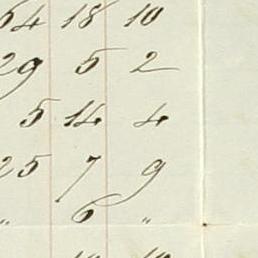 64 18 10
29 5 2
5 14 4
25 7 9
" 6 "